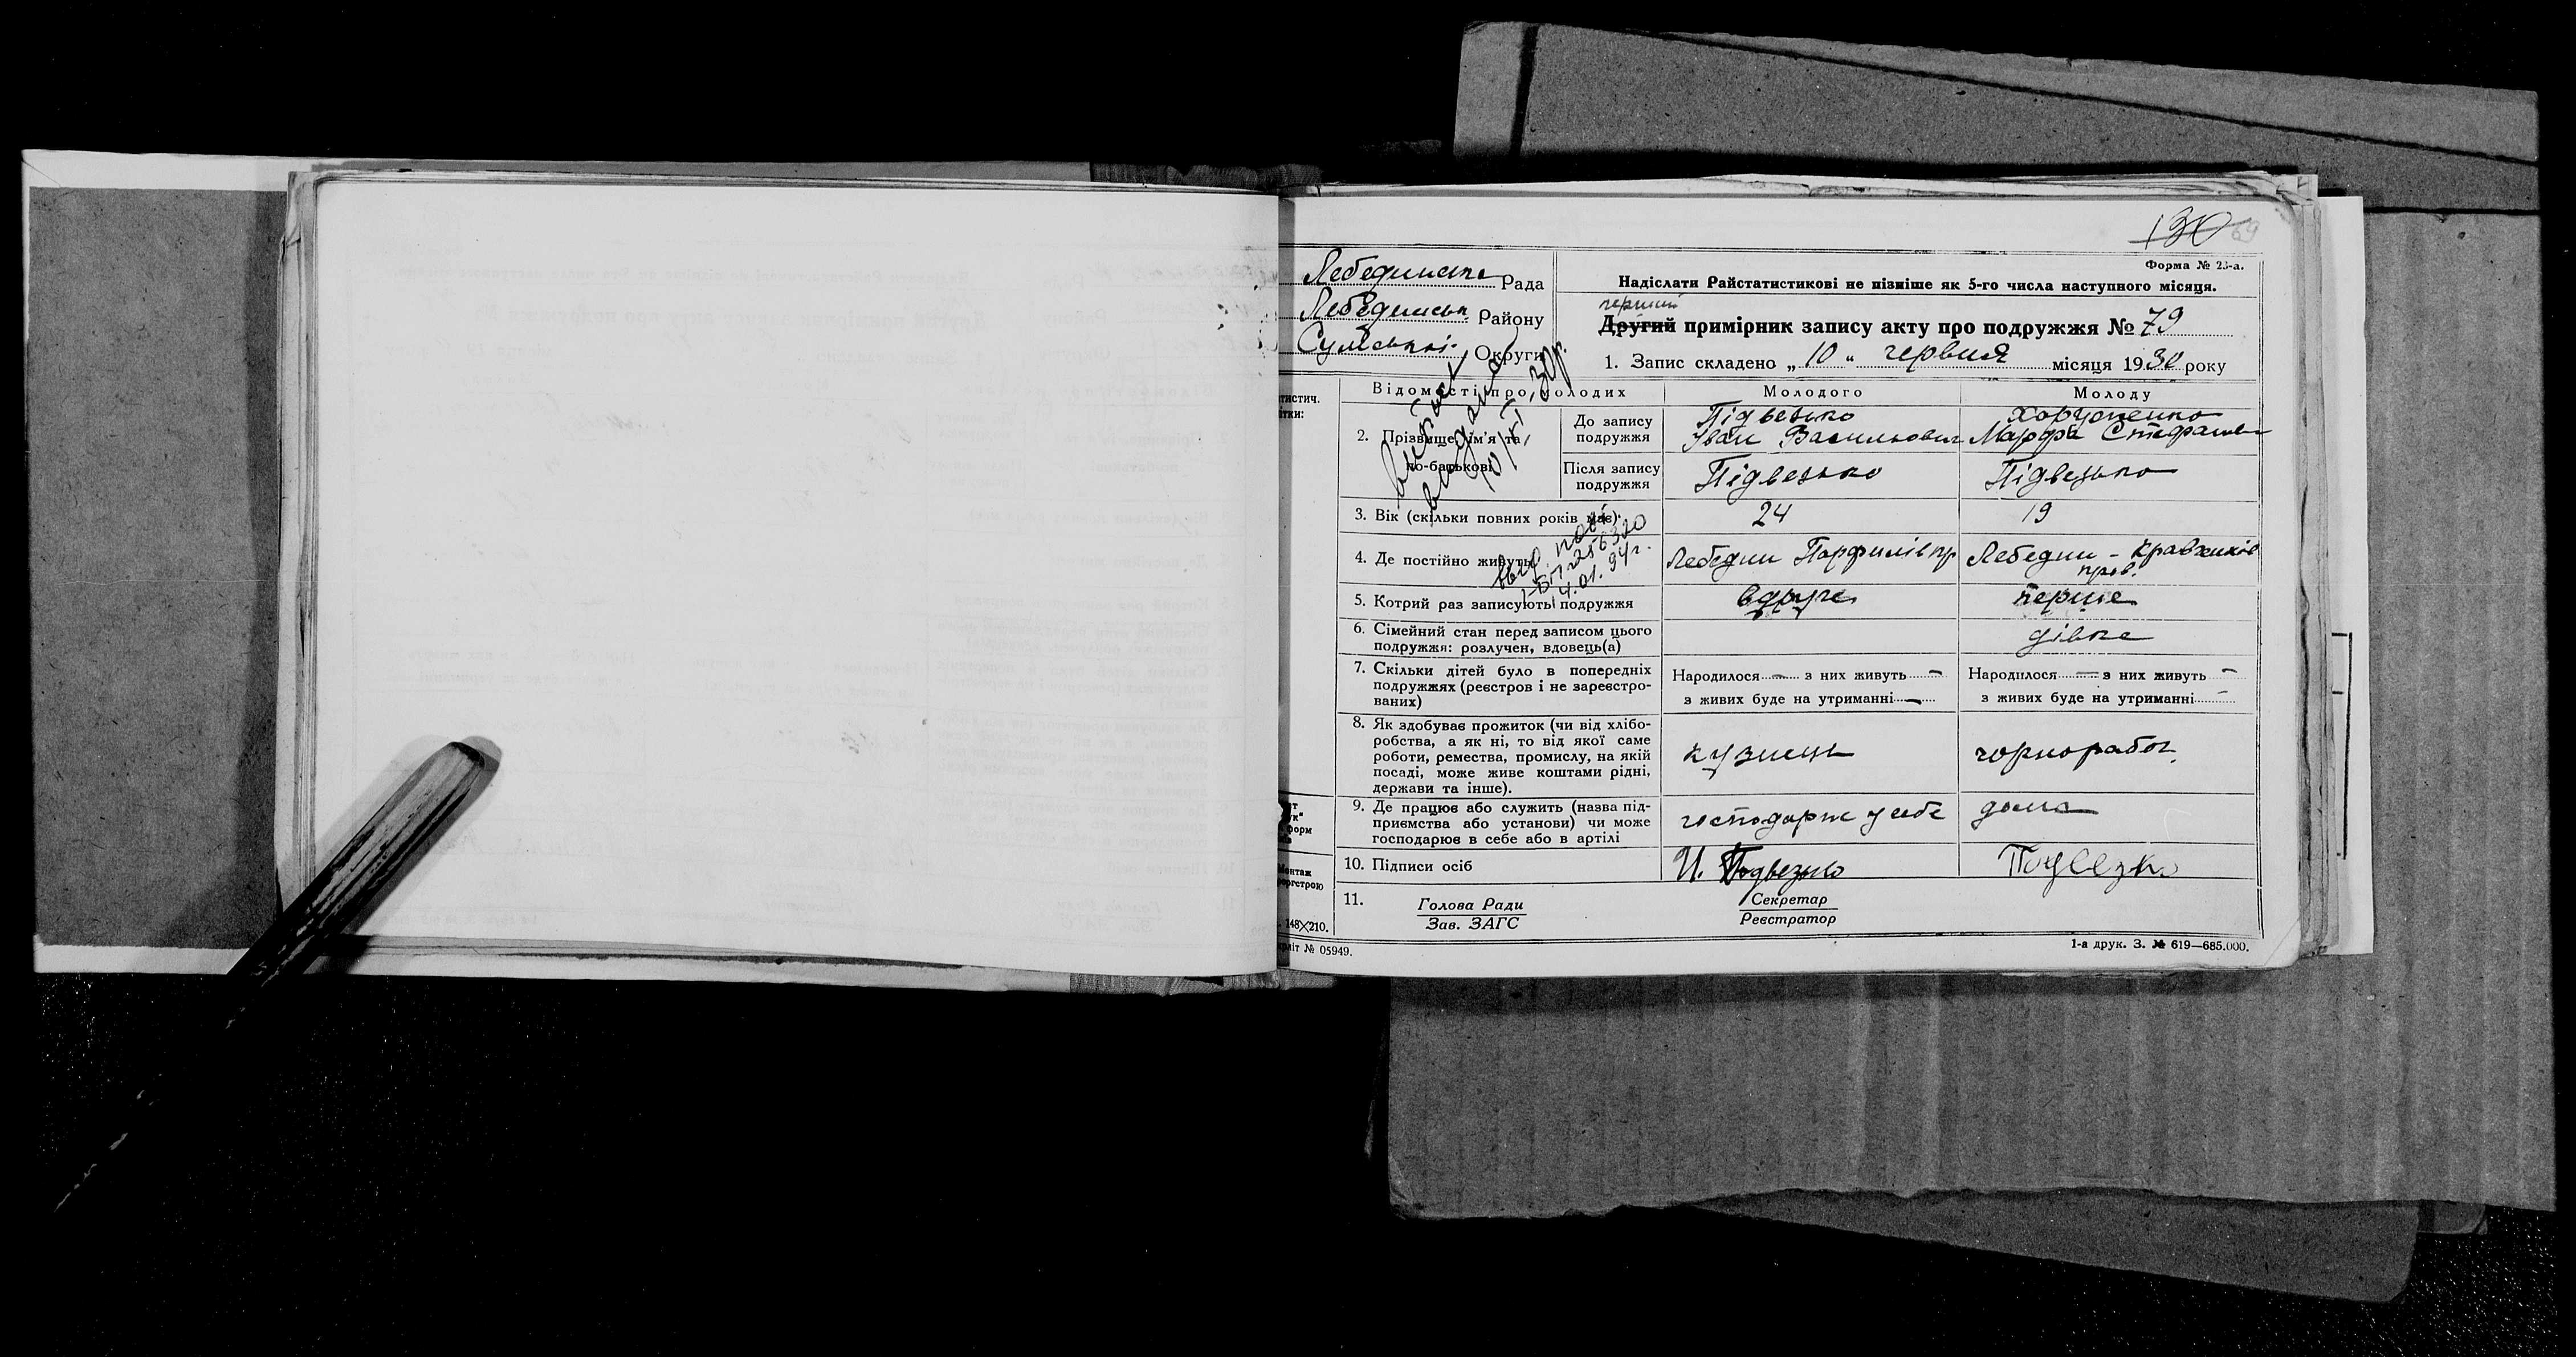 130 69
Форма № 23-а.
Лебединська Рада
Лебединськ. Району
Сумської Округи
Надіслати Райстатистикові не пізніше як 5-го числа наступного місяця.
перший
Другий примірник запису акту про подружжя № 79
1. Запис складено „10“ червня місяця 1930 року
Відомості про молодих Молодого Молоду
2. Прізвище, ім'я та по-батькові
До запису подружжя
Підвезько Хорупенко
Іван Васильович Марфа Стефанов
Після запису подружжя
Підвезько Підвезько
Виписку видано
10/VI 30р.
3. Вік (скільки повних років має). 24 19
4. Де постійно живуть Лебедин Парфилів пр Лебедин – Кравченків
пров.
выд. повт
I-БП 256320
14.01.94г.
5. Котрий раз записують подружжя вдруге перше
6. Сімейний стан перед записом цього
подружжя: розлучен, вдовець(а) дівка
7. Скільки дітей було в попередніх
подружжях (реєстров і не зареєстро-
ваних)
Народилося — з них живуть —
з живих буде на утриманні —
Народилося — з них живуть —
з живих буде на утриманні —
8. Як здобуває прожиток (чи від хлібо-
робства, а як ні, то від якої саме
роботи, ремества, промислу, на якій
посаді, може живе коштами рідні,
держави та інше).
кузнець чорноработ.
9. Де працює або служить (назва під-
приємства або установи) чи може
господарює в себе або в артілі
господарює у себе дома
10. Підписи осіб И. Подвезько Подвезко
11. Голова Ради
Зав. ЗАГС
Секретар
Реєстратор
148×210.
№ 05949.
1-а друк. З. № 619—685.000.